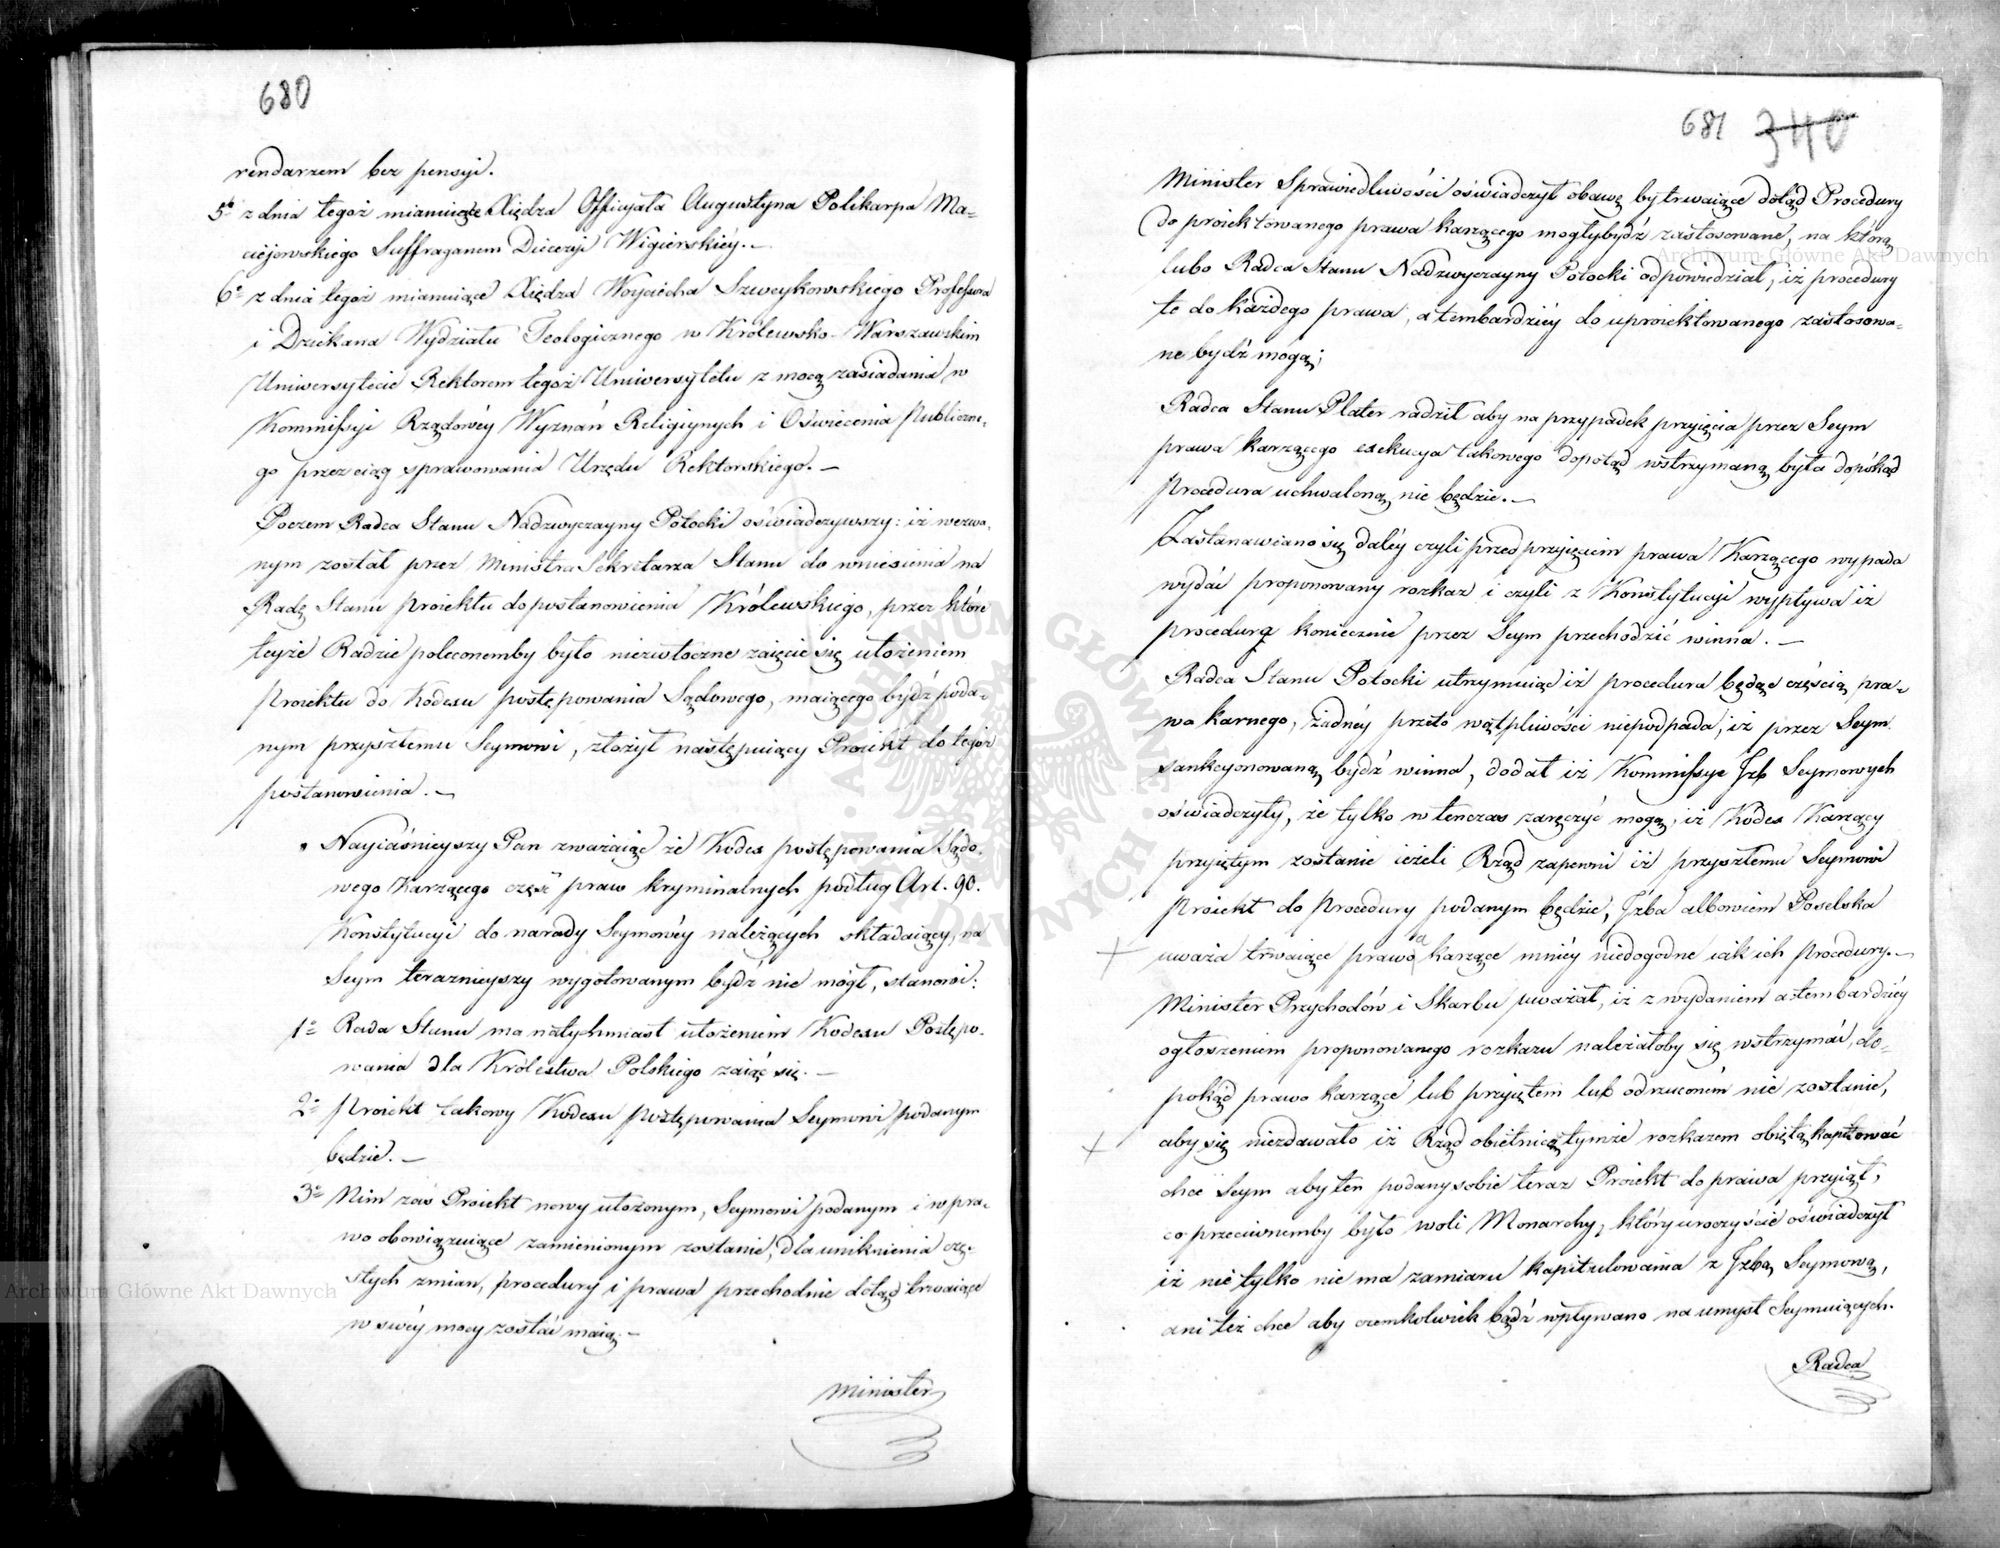 680
rendarzem bez pensyi.
5º z dnia tegoż mianuiące Xiędza Officyała Augustyna Polikarpa Ma=
ciejowskiego Suffraganem Diecezyi Wigierskiéy. —
6º z dnia tegoż mianuiące Xiędza Woyciecha Szweykowskiego Professora
i Dziekana Wydziału Teologicznego w Królewsko-Warszawskim
Uniwersytecie Rektorem tegoż Uniwersytetu z mocą zasiadania w
Kommissyi Rządowéy Wyznań Religiynych i Oświecenia Publiczne-
go przez ciąg sprawowania Urzędu Rektorskiego. —
Poczem Radca Stanu Nadzwyczayny Potocki oświadczywszy: iż wezwa-
nym został przez Ministra Sekretarza Stanu do wniesienia na
Radę Stanu Proiektu do postanowienia Królewskiego, przez które
teyże Radzie poleconemby było niezwłoczne zaięcie się ułożeniem
Proiektu do Kodexu postępowania Sądowego, maiącego bydź poda=
nym przyszłemu Seymowi, złożył następuiący Proiekt do tegóż
postanowienia. —
Nayiaśnieyszy Pan zważaiąc że Kodex postępowania Sądo-
wego Karzącego część praw kryminalnych podług Art. 90.
Konstytucyi do narady Seymowéy należących składaiący, na
Seym terazniejszy wygotowanym bydź nie mógł, stanowi:
1º Rada Stanu ma natychmiast ułożeniem Kodexu Postępo-
wania dla Królestwa Polskiego zaiąć się. —
2º Proiekt takowy Kodexu postępowania Seymowi podanym
będzie. —
3º Nim zaś Proiekt nowy ułożonym, Seymowi podanym i w pra-
wo obowiązuiące zamienionym zostanie, dla uniknienia czę-
stych zmian, procedury i prawa przechodnie dotąd trwaiące
w swéy mocy zostać maią. —
Minister
681 340
Minister Sprawiedliwości oświadczył obawę by trwaiące dotąd Procedury
do proiektowanego prawa karzącego mogły bydź zastosowane, na którą
lubo Radca Stanu Nadzwyczayny Potocki odpowiedział, iż procedury
te do każdego prawa, a tembardziéy do uproiektowanego zastosowa-
ne bydź mogą;
Radca Stanu Plater radził aby na przypadek przyięcia przez Seym
prawa karzącego exekucya takowego dopotąd wstrzymaną była dopókąd
Procedura uchwaloną nie będzie. —
Zastanawiano się daléy czyli przed przyięciem prawa Karzącego wypada
wydać proponowany rozkaz i czyli z Konstytucyi wypływa iż
procedura koniecznie przez Seym przechodzić winna. —
Radca Stanu Potocki utrzymuiąc iż procedura będąc częścią pra-
wa karnego, żadnéy przeto wątpliwości niepodpada, iż przez Seym
sankcyonowaną bydź winna, dodał iż Kommissye Izb Seymowych
oświadczyły, że tylko w tenczas zaręczyć mogą, iż Kodex Karzący
przyiętym zostanie ieżeli Rząd zapewni iż przyszłemu Seymowi
Proiekt do Procedury podanym będzie, Izba albowiem Poselska
uważa trwaiące prawa karzące mniéy niedogodne iak ich procedury. —
Minister Przychodów i Skarbu uważał, iż z wydaniem a tembardziéy
ogłoszeniem proponowanego rozkazu należałoby się wstrzymać, do=
pokąd prawo karzące lub przyiętem lub odrzuconém nie zostanie,
aby się niezdawało iż Rząd obietnicą tymże rozkazem obiętą kapitować
chce Seym aby ten podany sobie teraz Proiekt do prawa przyiął,
co przeciwnemby było woli Monarchy, który uroczyście oświadczył
iż nie tylko nie ma zamiaru kapitulowania z Izbą Seymową,
ani też chce aby czemkolwiek bądź wpływano na umysł Seymuiących.
Radca
Archiwum Główne Akt Dawnych
Archiwum Główne Akt Dawnych
ARCHIWUM GŁÓWNE AKT DAWNYCH